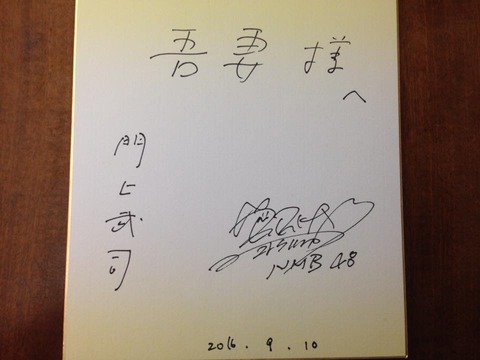 吾妻様
へ
門上武司
NMB48
2016.9.10